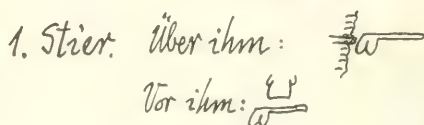 1. Stier. Über ihm:
Vor ihm: